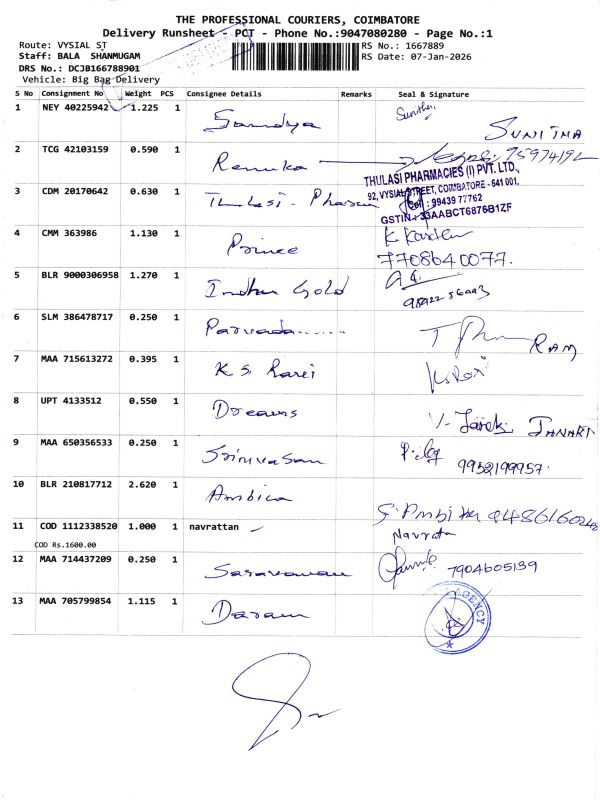 THE PROFESSIONAL COURIERS, COIMBATORE
Delivery Runsheet - PCT - Phone No.:9047080280 - Page No.:1
Route: VYSIAL ST RS No.: 1667889
Staff: BALA SHANMUGAM RS Date: 07-Jan-2026
DRS No.: DCJB166788901
Vehicle: Big Bag Delivery
S No Consignment No Weight PCS Consignee Details Remarks Seal & Signature
1 NEY 40225942 1.225 1 Sandya SUNITHA
2 TCG 42103159 0.590 1 Renuka
3 CDM 20170642 0.630 1 Thulasi - Pharma
THULASI PHARMACIES (I) PVT. LTD.,
92, VYSIAL STREET, COIMBATORE - 641 001.
Cell : 99439 77762
GSTIN : 33AABCT6876B1ZF
4 CMM 363986 1.130 1 Prince
7708640077.
5 BLR 9000306958 1.270 1 Indhu Gold
6 SLM 386478717 0.250 1 RAM
7 MAA 715613272 0.395 1 K S Ravi
8 UPT 4133512 0.550 1 Dreams JANAKI
9 MAA 650356533 0.250 1 Srinivasan
9952199957.
10 BLR 210817712 2.620 1 Ambica
11 COD 1112338520 1.000 1 navrattan
COD Rs.1600.00
12 MAA 714437209 0.250 1 Saravanan 7904605139
13 MAA 705799854 1.115 1
AGENCY